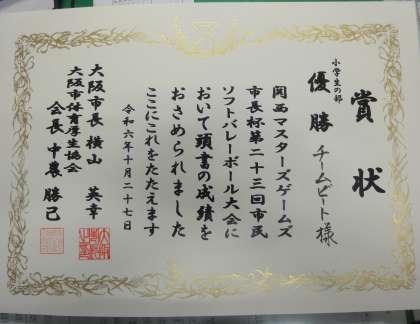 賞状
小学生の部
優勝 チームビート様
関西マスターズゲームズ
市長杯第二十三回市民
ソフトバレーボール大会に
おいて頭書の成績を
おさめられました
ここにこれをたたえます
令和六年十月二十七日
大阪市長 横山 英幸
大阪市体育厚生協会
会長 中農 勝己